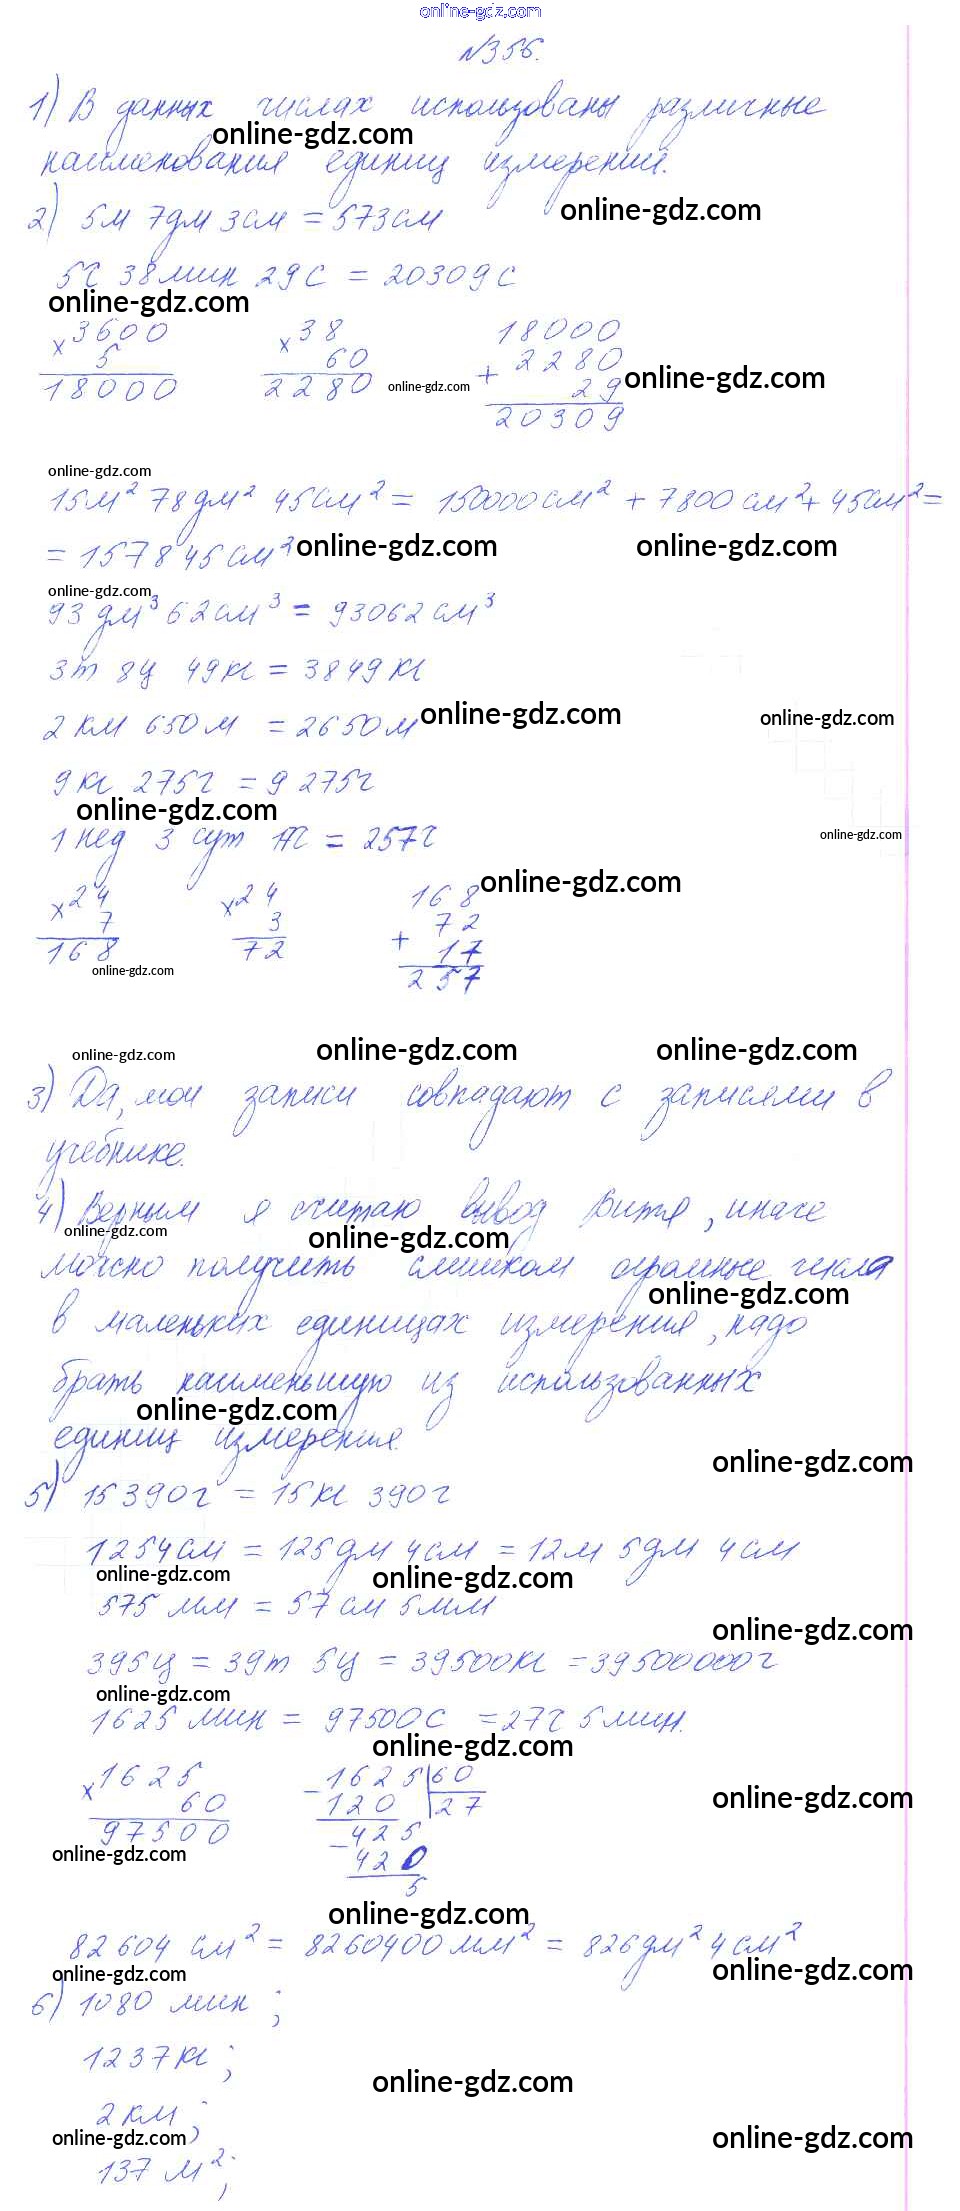 online-gdz.com
№356.
1) В данных числах использованы различные
online-gdz.com
наименования единиц измерений.
2) 5м 7дм 3см = 573см
online-gdz.com
5ч 38мин 29с = 20309с
online-gdz.com
×3600 ×38 18000
5 60 + 2280 online-gdz.com
18000 2280 online-gdz.com 29
20309
online-gdz.com
15м² 78дм² 45см² = 150000см² + 7800см² + 45см² =
= 157845см² online-gdz.com online-gdz.com
online-gdz.com
93дм³ 62см³ = 93062см³
3т 8ц 49кг = 3849кг
2км 650м = 2650м online-gdz.com online-gdz.com
9кг 275г = 9275г
online-gdz.com
1нед 3сут 17ч = 257ч online-gdz.com
×24 ×24 168 online-gdz.com
7 3 72
168 72 + 17
online-gdz.com 257
online-gdz.com online-gdz.com online-gdz.com
3) Да, мои записи совпадают с записями в
учебнике.
4) Верным я считаю вывод Вити, иначе
online-gdz.com online-gdz.com
можно получить слишком огромные числа
online-gdz.com
в маленьких единицах измерения, надо
брать наименьшую из использованных
online-gdz.com
единиц измерения.
online-gdz.com
5) 15390г = 15кг 390г
1254см = 125дм 4см = 12м 5дм 4см
online-gdz.com online-gdz.com
575мм = 57см 5мм
online-gdz.com
395ц = 39т 5ц = 39500кг = 39500000г
online-gdz.com
1625мин = 97500с = 27ч 5мин.
online-gdz.com
×1625 -1625|60
60 120 |27 online-gdz.com
97500 -425
online-gdz.com 420
5
online-gdz.com
82604см² = 8260400мм² = 826дм² 4см²
online-gdz.com online-gdz.com
6) 1080мин;
1237кг;
online-gdz.com
2км;
online-gdz.com online-gdz.com
137м²;